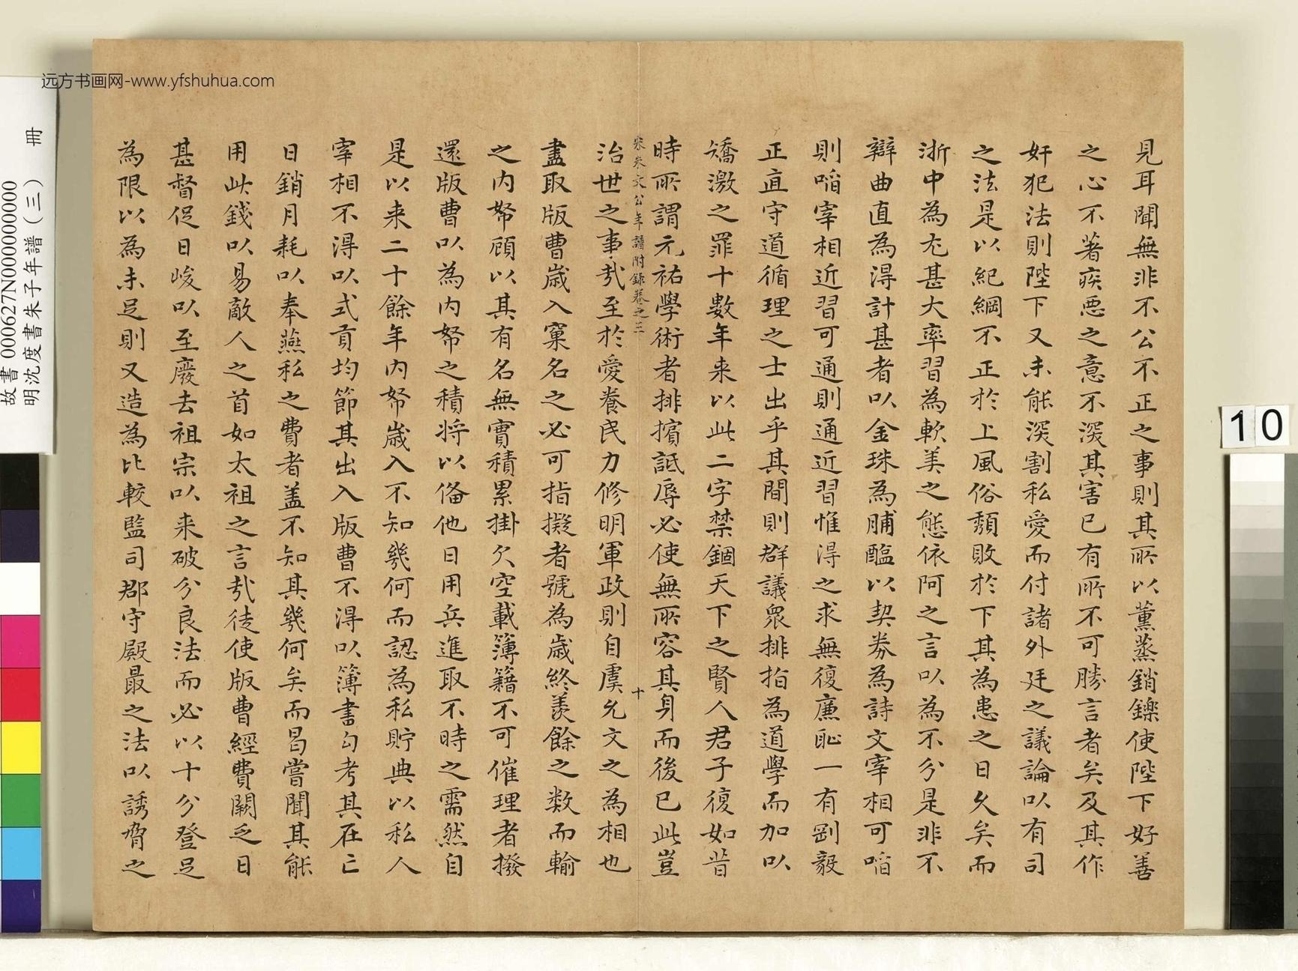 远方书画网-www.yfshuhua.com
見耳聞無非不公不正之事則其所以薰蒸銷鑠使陛下好善
之心不著疾惡之意不深其害已有所不可勝言者矣及其作
奸犯法則陛下又未能深割私愛而付諸外廷之議論以有司
之法是以紀綱不正於上風俗頹敗於下其為患之日久矣而
浙中為尤甚大率習為軟美之態依阿之言以為不分是非不
辯曲直為得計甚者以金珠為脯醢以契券為詩文宰相可啗
則啗宰相近習可通則通近習惟得之求無復廉恥一有剛毅
正直守道循理之士出乎其間則群議眾排指為道學而加以
矯激之罪十數年来以此二字禁錮天下之賢人君子復如昔
時所謂元祐學術者排擯詆辱必使無所容其身而後已此豈
宋朱文公年譜附錄卷之三 十
治世之事㢤至於愛養民力修明軍政則自虞允文之為相也
盡取版曹歲入窠名之必可指擬者號為歲終羨餘之数而輸
之内帑顧以其有名無實積累掛欠空載簿籍不可催理者撥
還版曹以為内帑之積将以俻他日用兵進取不時之需然自
是以来二十餘年内帑歲入不知幾何而認為私貯典以私人
宰相不得以式貢均節其出入版曹不得以簿書勾考其在亡
日銷月耗以奉燕私之費者盖不知其幾何矣而曷嘗聞其能
用此錢以易敵人之首如太祖之言㢤徒使版曹經費闕乏日
甚督促日峻以至廢去祖宗以来破分良法而必以十分登足
為限以為未足則又造為比較監司郡守殿最之法以誘脅之
故書000627N000000000 冊
明沈度書朱子年譜(三)
10